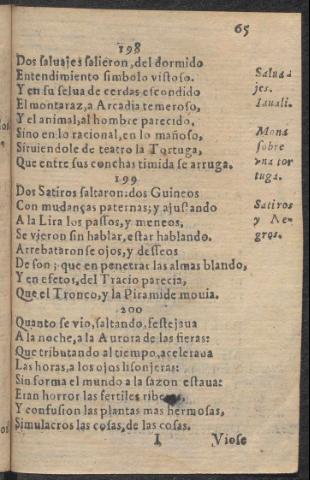 65
198
Dos saluajes salieron, del dormido
Entendimiento simbolo vistoso.
Y en su selua de cerdas escondido
El montaraz, a Arcadia temeroso,
Y el animal, al hombre parecido,
Sino en lo racional, en lo mañoso,
Siruiendole de teatro la Tortuga,
Que entre sus conchas timida se arruga.
Saluajes.
Iauali.
Mona
sobre
vna tor
tuga.
199
Dos Satiros saltaron: dos Guineos
Con mudanças paternas; y ajustando
A la Lira los passos, y meneos,
Se vieron sin hablar, estar hablando.
Arrebataronse ojos, y desseos
De son; que en penetrar las almas blando,
Y en efetos, del Tracio parecia,
Que el Tronco, y la Piramide mouia.
Satiros
y Ne-
gros.
200
Quanto se vio, saltando, festejaua
A la noche, a la Aurora de las fieras:
Que tributando al tiempo, aceleraua
Las horas, a los ojos lisonjeras:
Sin forma el mundo a la sazon estaua:
Eran horror las fertiles riberas,
Y confusion las plantas mas hermosas,
Simulacros las cosas, de las cosas.
I Viose